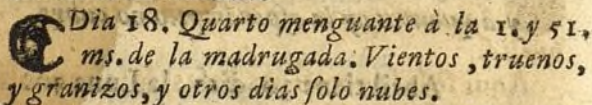 Dia 18. Quarto menguante à la 1. y 51.
ms. de la madrugada. Vientos, truenos,
y granizos, y otros dias ſolo nubes.